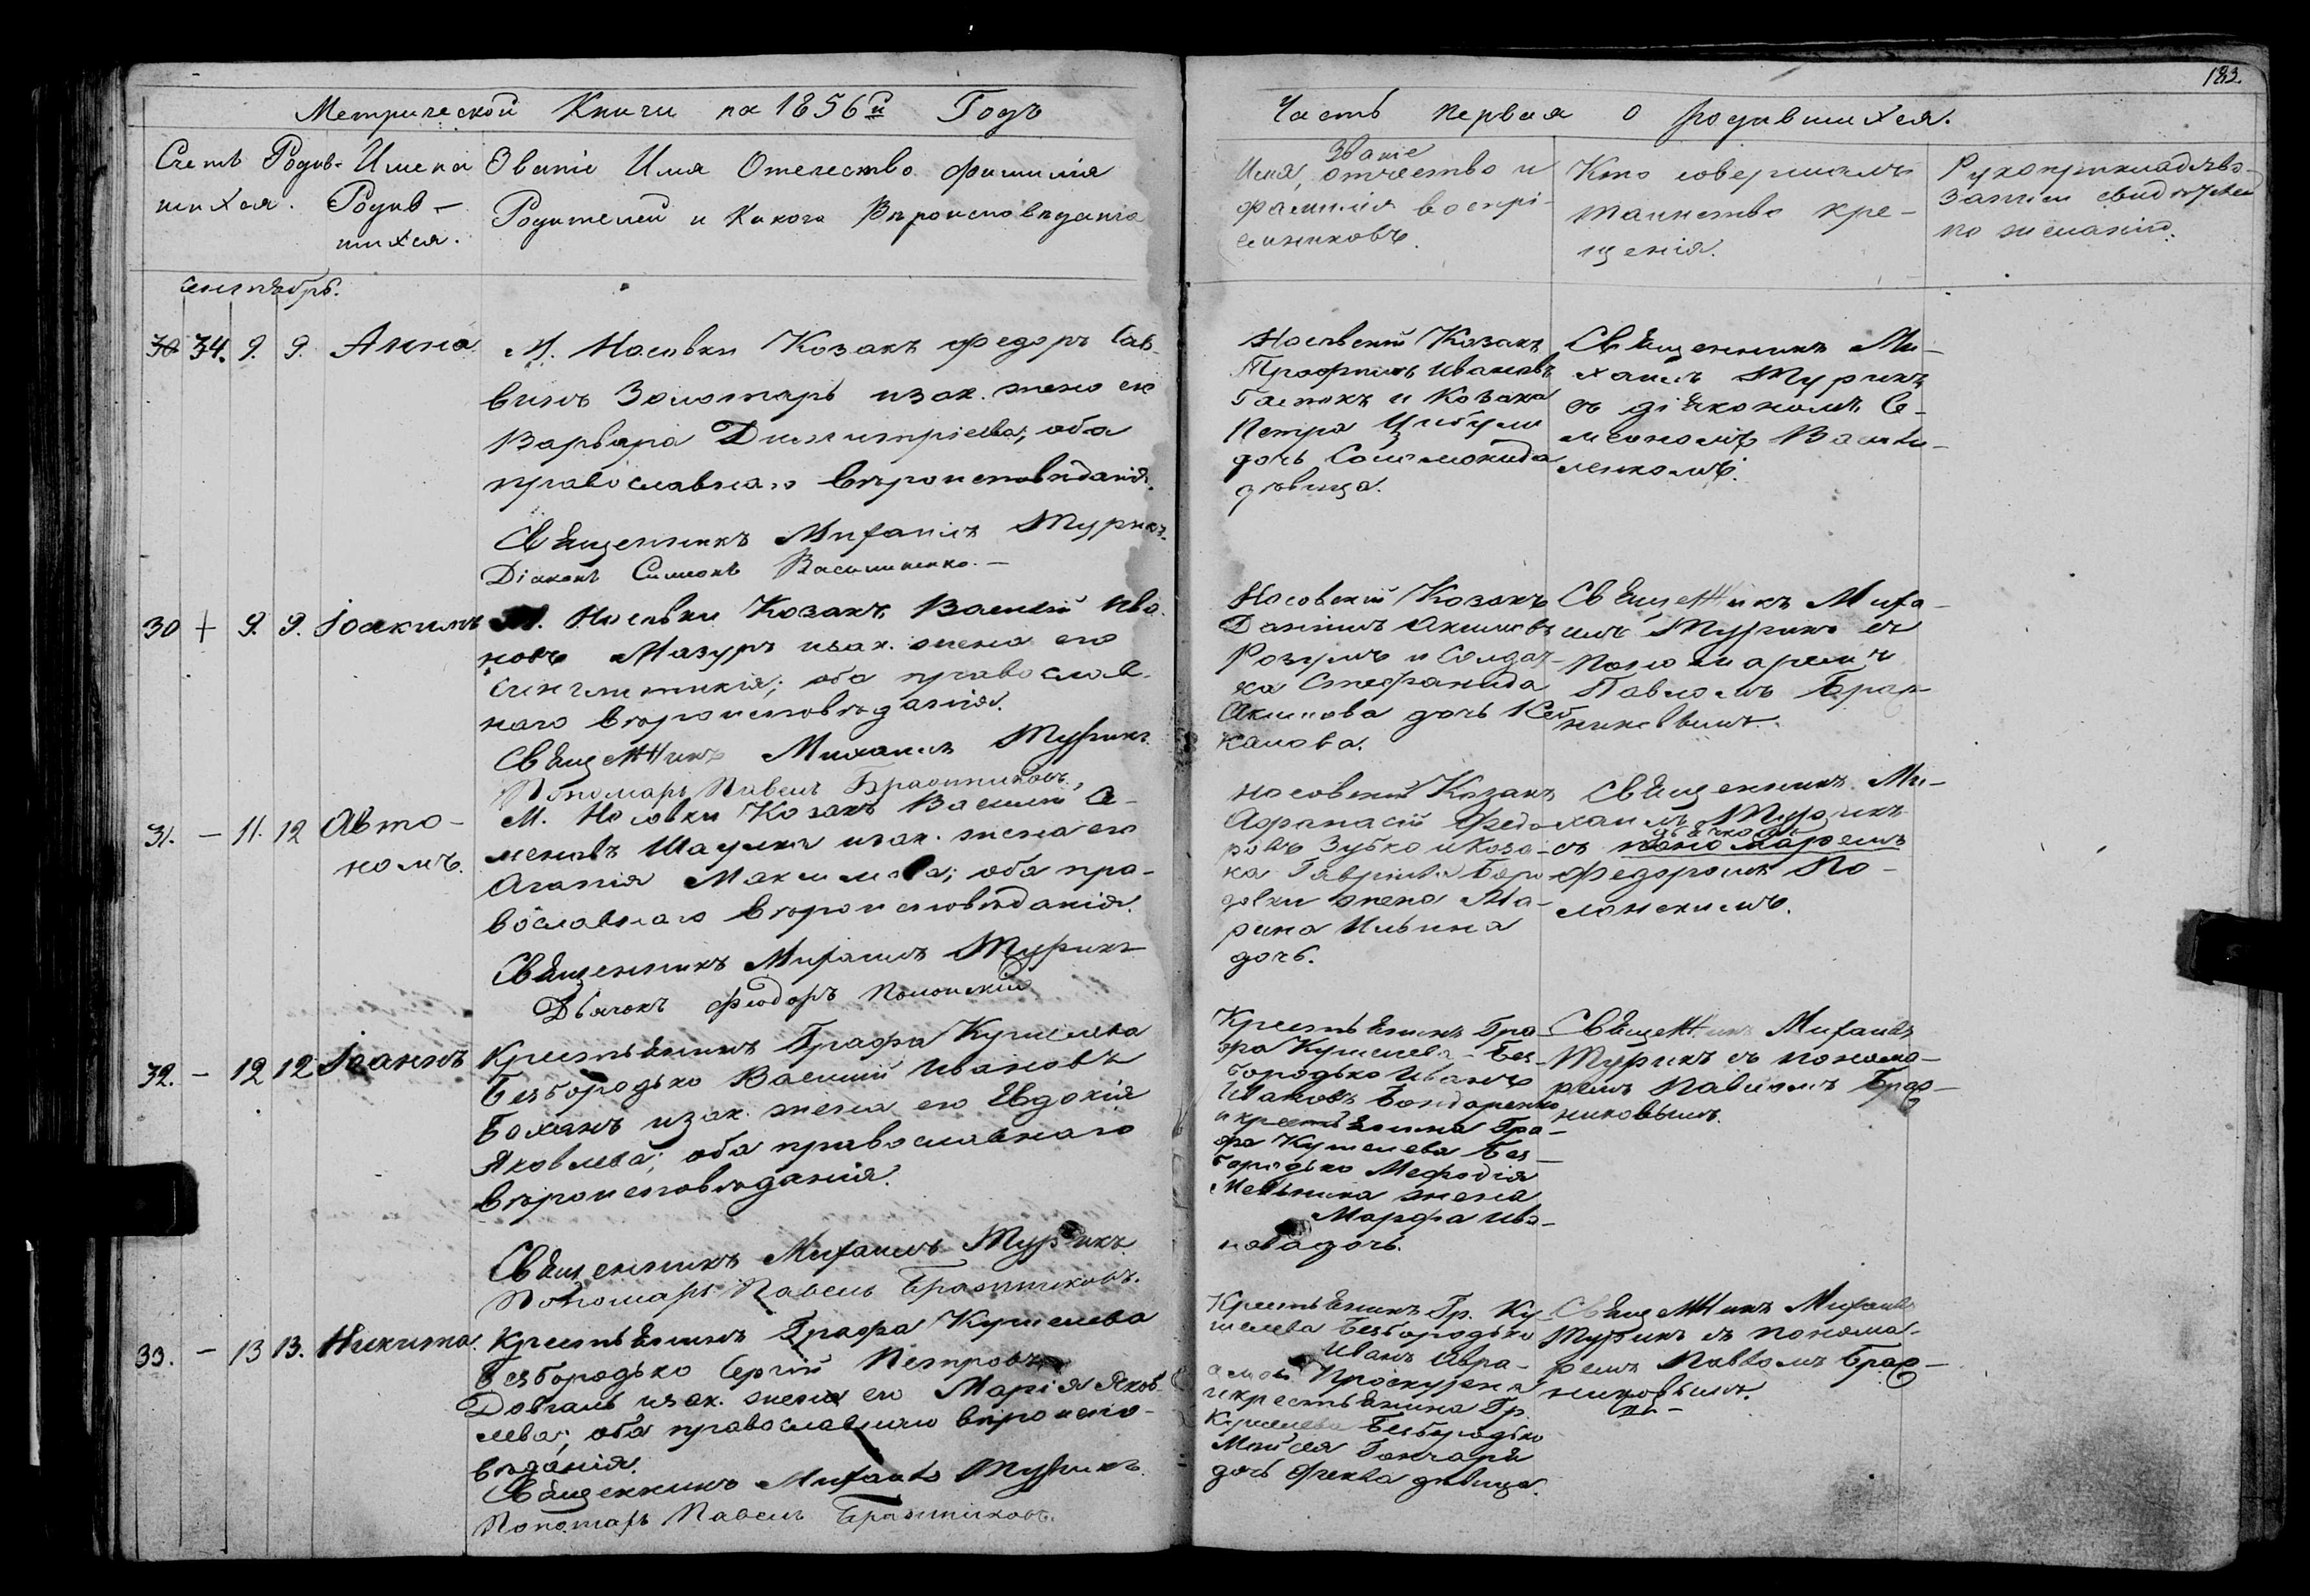 183.
Метрической Книги на 1856й Годъ
Часть первая о родившихся.
Счетъ Родив-
шихся.
Имена
Родив-
шихся.
Званіе Имя Отечество фамилія
Родителей и Какого Вѣроисповѣданія
Званіе
Имя, отчество и
фамилія воспрі-
емниковъ.
Кто совершалъ
таинство кре-
щенія.
Рукоприкладство
свидѣтелей
по желанію.
Сентябрь.
30 34. 9. 9. Анна
М. Носовки Козакъ Федоръ Сав-
винъ Золотарь и зак. жена его
Варвара Димитріева; оба
православнаго вѣроисповѣданія.
Священникъ Михаилъ Турикъ
Діаконъ Симеонъ Василенко.-
Носовскій Козакъ
Трофимъ Ивановъ
и Козака
Петра Цибули
дочь Соломонида
дѣвица.
Священникъ Ми-
хаилъ Турикъ
съ діякономъ Се-
меономъ Васи-
ленкомъ.
30 + 9. 9. Іоакимъ
М. Носовки Козакъ Василій Ива-
новъ Мазуръ и зак. жена его
Синклитикія; оба православ-
наго вѣроисповѣданія.
Священникъ Михаилъ Турикъ.
Пономарь Павелъ Бражниковъ.
Носовскій Козакъ
Даніилъ Акимовъ
Розумъ и Солдат-
ка Стефанида
Акимова дочь
Священникъ Миха-
илъ Турикъ съ
Пономаремъ
Павломъ Браж-
никовымъ.
31. - 11. 12 Авто-
номъ.
М. Носовки Козакъ Василій Се-
меновъ и зак. жена его
Агапія Максимова; оба пра-
вославнаго вѣроисповѣданія.
Священникъ Михаилъ Турикъ
Дьячокъ Феодоръ Полонскій
Носовскій Козакъ
Афанасій Федо-
ровъ Зубко и Коза-
ка Гавріила
жена Ма-
рина Ильина
дочь.
Священникъ Ми-
хаилъ Турикъ
съ пономаремъ
Федоромъ По-
лонскимъ.
32. - 12 12 Іоаннъ
Крестьянинъ Графа Кушелева
Безбородько Василій Ивановъ
Боханъ и зак. жена его Евдокія
Яковлева; оба православнаго
вѣроисповѣданія.
Священникъ Михаилъ Турикъ.
Пономарь Павелъ Бражниковъ.
Крестьянинъ Гра-
фа Кушелева-Без-
бородько Иванъ
Ивановъ Бондаренко
и крестьянина Гра-
фа Кушелева Без-
бородько Мефодія
Мельника жена
Марфа Ива-
нова дочь.
Священникъ Михаилъ
Турикъ съ понома-
ремъ Павломъ Браж-
никовымъ.
33. - 13 13. Никита.
Крестьянинъ Графа Кушелева
Безбородько Сергій Петровъ
Довгань и зак. жена его Марія Яков-
лева; оба православнаго вѣроиспо-
вѣданія.
Священникъ Михаилъ Турикъ.
Пономарь Павелъ Бражниковъ.
Крестьянинъ Гр. Ку-
шелева Безбородько
Иванъ Авра-
амов Проскурен
и крестьянина Гр.
Кушелева Безбородько
Моисея Гончаря
дочь Фекла дѣвица.
Священникъ Михаилъ
Турикъ съ понома-
ремъ Павломъ Браж-
никовымъ.